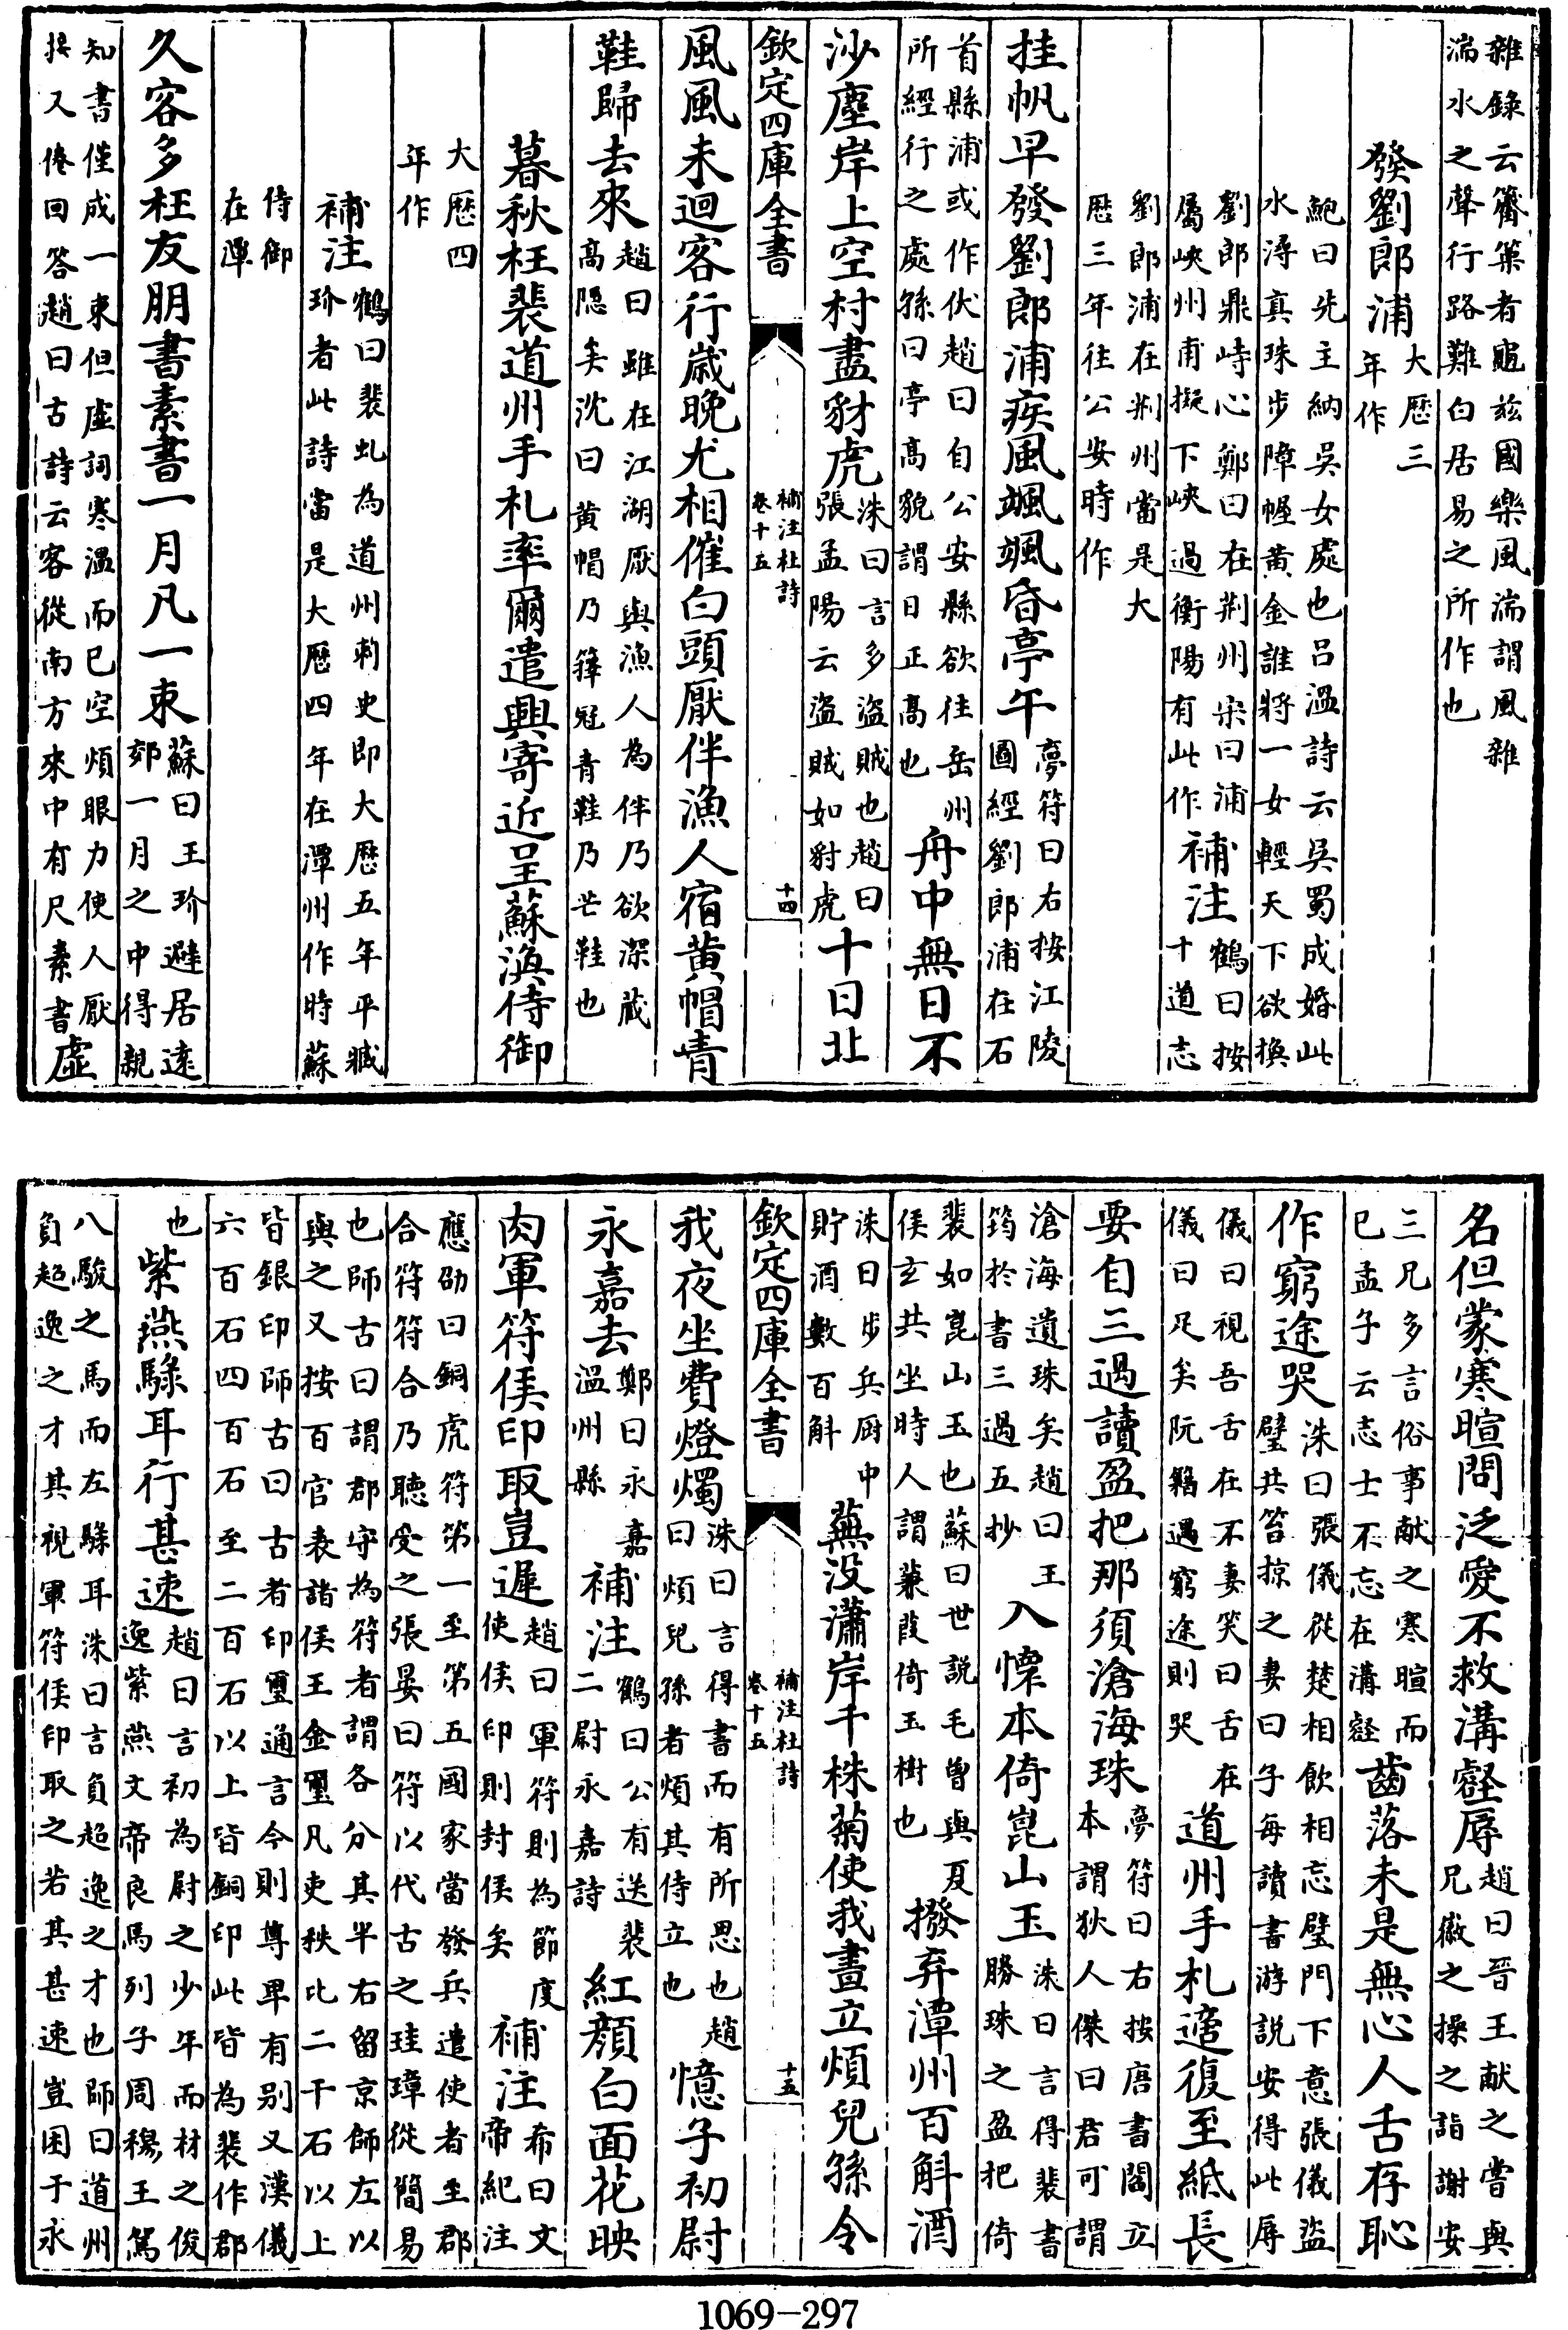 雜錄云觱篥者龜茲國樂風湍謂風雜湍水之聲行路難白居易之所作也
發劉郎浦大歴三年作
鮑曰先主納吳女處也呂溫詩云吳蜀成婚此水潯真珠步障幄黄金誰將一女輕天下欲換
劉郎鼎峙心鄭曰在荆州宋曰浦屬峽州甫擬下峽過衡陽有此作補注鶴曰按十道志
劉郎浦在荆州當是大歴三年往公安時作
挂帆早發劉郎浦疾風颯颯昏亭午夢符曰右按江陵圖經劉郎浦在石
首縣浦或作伏趙曰自公安縣欲往岳州所經行之處孫曰亭高貌謂日正高也舟中無日不
沙塵岸上空村盡豺虎洙曰言多盜賊也趙曰張孟陽云盜賊如豺虎十日北
欽定四庫全書
補注杜詩
卷十五
十四
風風未迴客行歲晚尤相催白頭厭伴漁人宿黄帽青
鞋歸去來趙曰雖在江湖厭與漁人為伴乃欲深藏高隠矣沈曰黄帽乃籜冠青鞋乃芒鞋也
暮秋枉裴道州手札率爾遣興寄近呈蘇渙侍御
大歴四年作
補注鶴曰裴虬為道州刺史即大歴五年平臧玠者此詩當是大歴四年在潭州作時蘇
侍御在潭
久客多枉友朋書素書一月凡一束蘇曰王玠避居遠郊一月之中得親
知書僅成一束但虛詞寒溫而已空煩眼力使人厭接又倦回答趙曰古詩云客從南方來中有尺素書虛
名但蒙寒暄問泛愛不救溝壑辱趙曰晉王献之嘗與兄徽之操之詣謝安
三兄多言俗事献之寒暄而已孟子云志士不忘在溝壑齒落未是無心人舌存恥
作窮途哭洙曰張儀從楚相飲相忘璧門下意張儀盜璧共笞掠之妻曰子毎讀書游説安得此辱
儀曰視吾舌在不妻笑曰舌在儀曰足矣阮籍遇窮途則哭道州手札適復至紙長
要自三過讀盈把那須滄海珠夢符曰右按唐書閻立本謂狄人傑曰君可謂
滄海遺珠矣趙曰王筠於書三過五抄入懷本倚崑山玉洙曰言得裴書勝珠之盈把倚
裴如崑山玉也蘇曰世説毛曽與夏侯玄共坐時人謂蒹葭倚玉樹也撥弃潭州百斛酒
洙曰步兵厨中貯酒數百斛蕪没瀟岸千株菊使我晝立煩兒孫令
欽定四庫全書
補注杜詩
卷十五
十五
我夜坐費燈燭洙曰言得書而有所思也趙曰煩兒孫者煩其侍立也憶子初尉
永嘉去鄭曰永嘉温州縣補注鶴曰公有送裴二尉永嘉詩紅顔白面花映
肉軍符侯印取豈遲趙曰軍符則為節度使侯印則封侯矣補注希曰文帝紀注
應劭曰銅虎符第一至第五國家當發兵遣使者至郡合符符合乃聽受之張晏曰符以代古之珪璋從簡易
也師古曰謂郡守為符者謂各分其半右留京師左以與之又按百官表諸侯王金璽凡吏秩比二千石以上
皆銀印師古曰古者印璽通言今則尊卑有别又漢儀六百石四百石至二百石以上皆銅印此皆為裴作郡
也紫燕騄耳行甚速趙曰言初為尉之少年而材之俊逸紫燕文帝良馬列子周穆王駕
八駿之馬而左騄耳洙曰言負超逸之才也師曰道州負超逸之才其視軍符侯印取之若其甚速豈困于永
1069-297